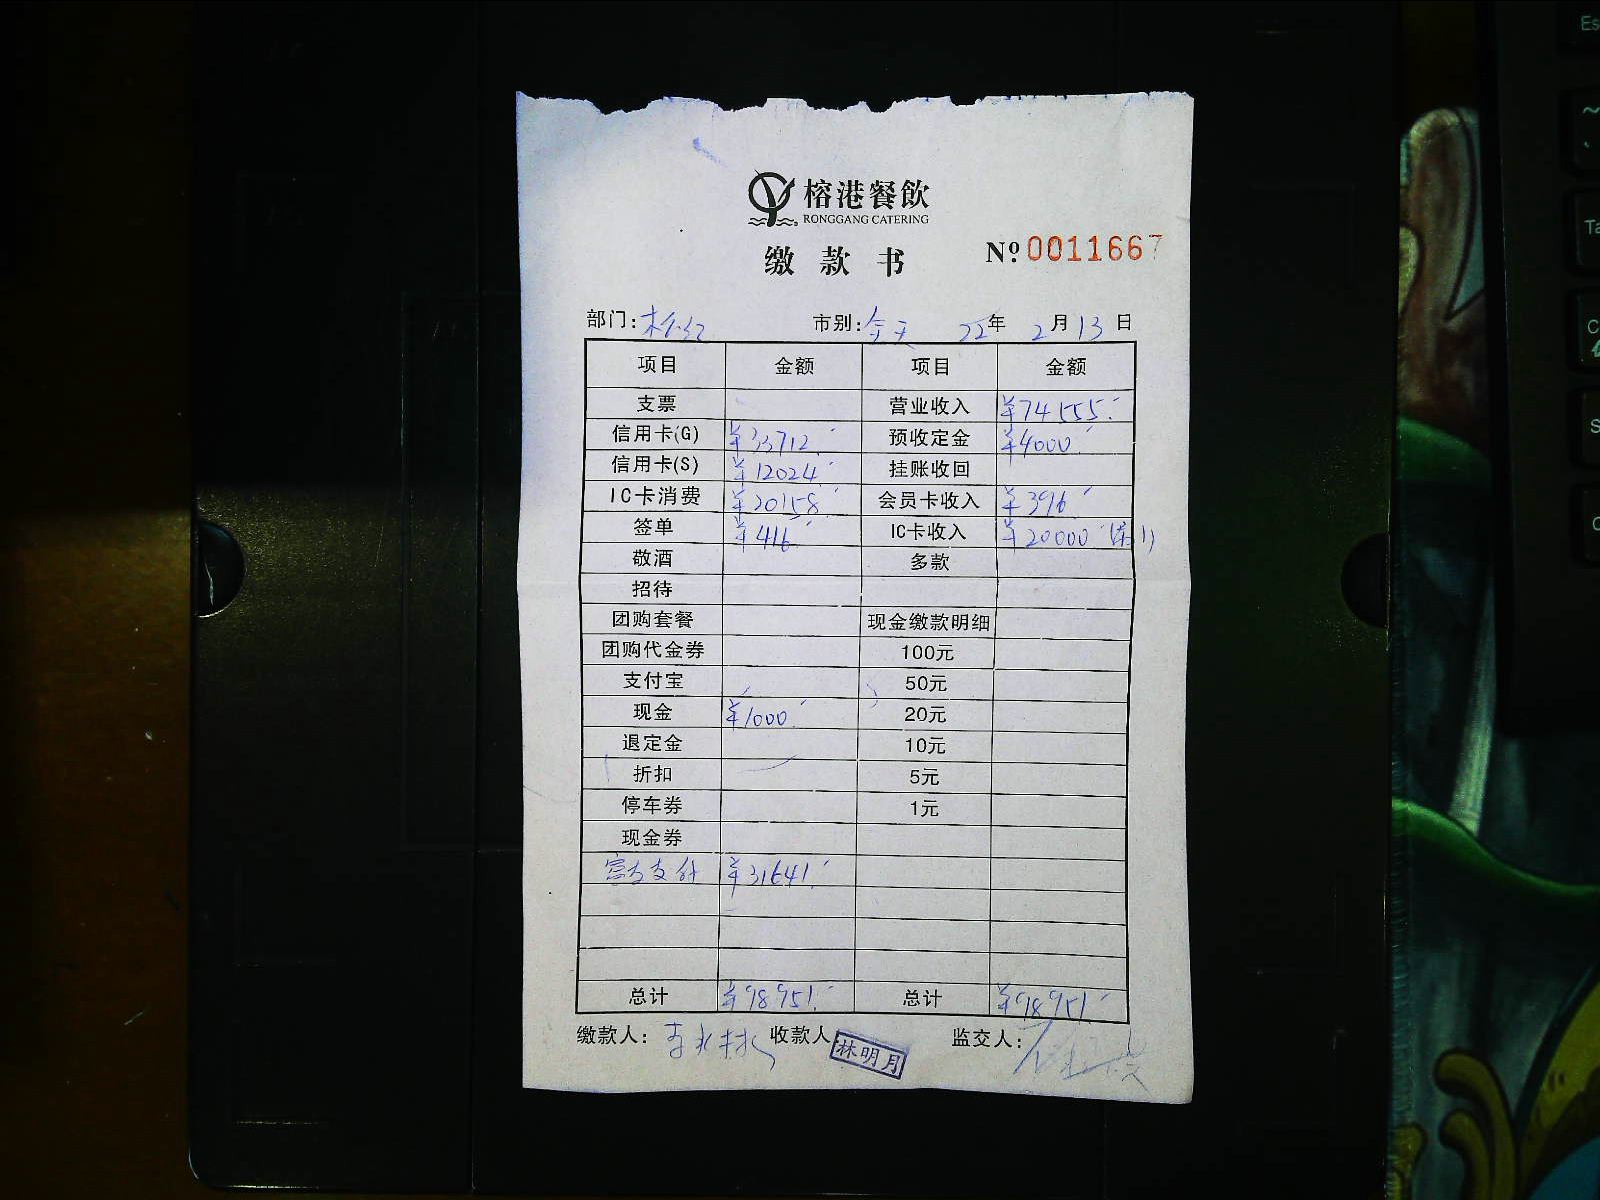 榕港餐飲
RONGGANG CATERING
缴款书 Nº 0011667
部门: 市别:全天 22年 2月13日
项目 金额 项目 金额
支票 营业收入 ¥74555.
信用卡(G) ¥33712. 预收定金 ¥4000.
信用卡(S) ¥12024. 挂账收回
IC卡消费 ¥20158. 会员卡收入 ¥396
签单 ¥416. IC卡收入 ¥20000
敬酒 多款
招待
团购套餐 现金缴款明细
团购代金券 100元
支付宝 50元
现金 ¥1000. 20元
退定金 10元
折扣 5元
停车券 1元
现金券
富友支付 ¥31641.
总计 ¥98951. 总计 ¥98951
缴款人: 收款人 林明月 监交人: